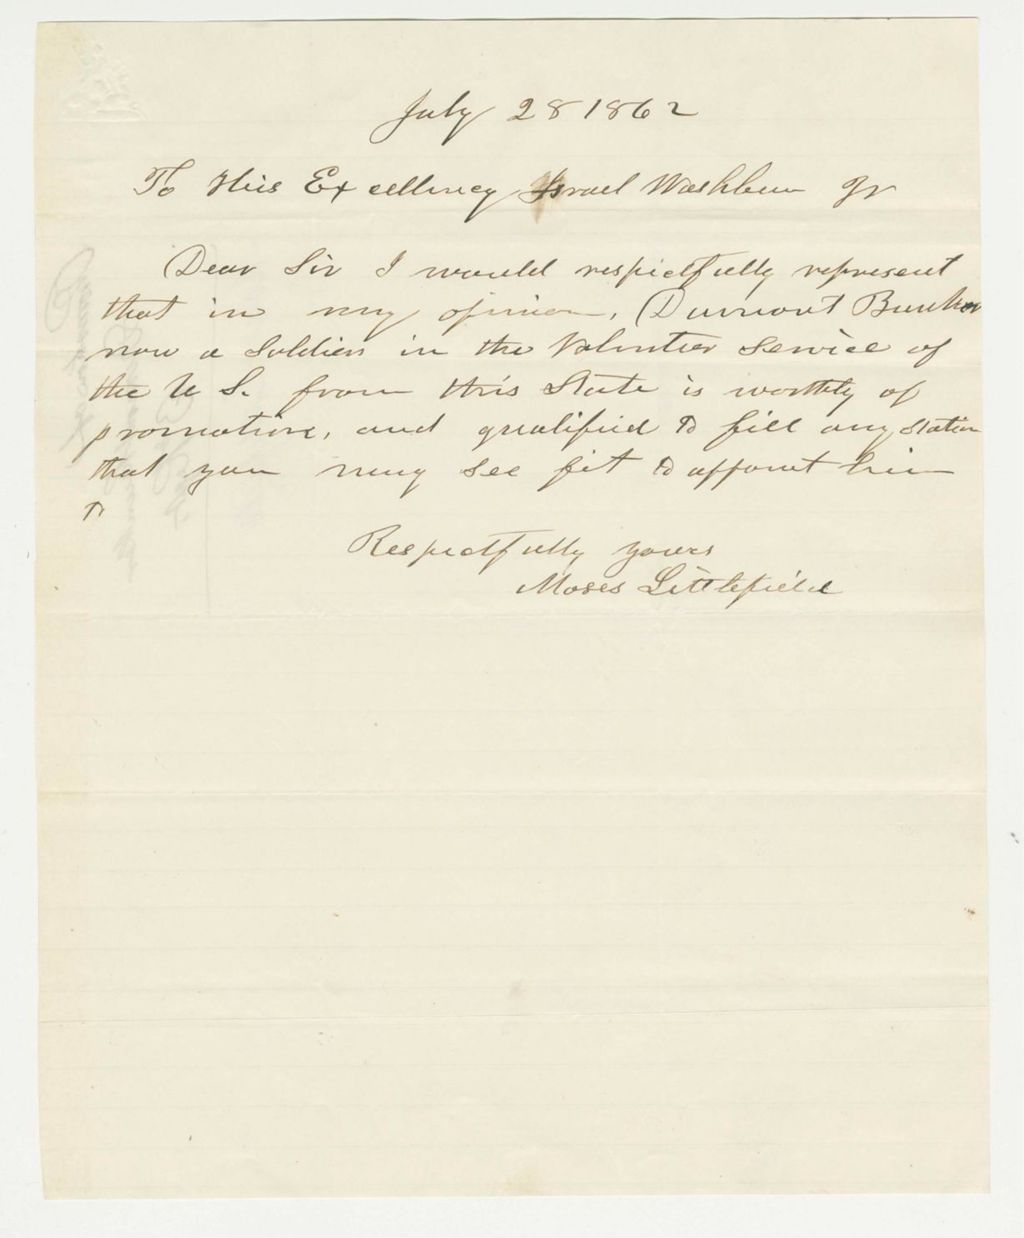 July 28 1862
To His Excellency Israel Washburn Jr
Dear Sir I would respectfully represent
that in my opinion, Dumont Bunker
now a Soldier in the Volunteer Service of
the U S. from this State is worthy of
promotion, and qualified to fill any station
that you may see fit to appoint him
to
Respectfully yours
Moses Littlefield